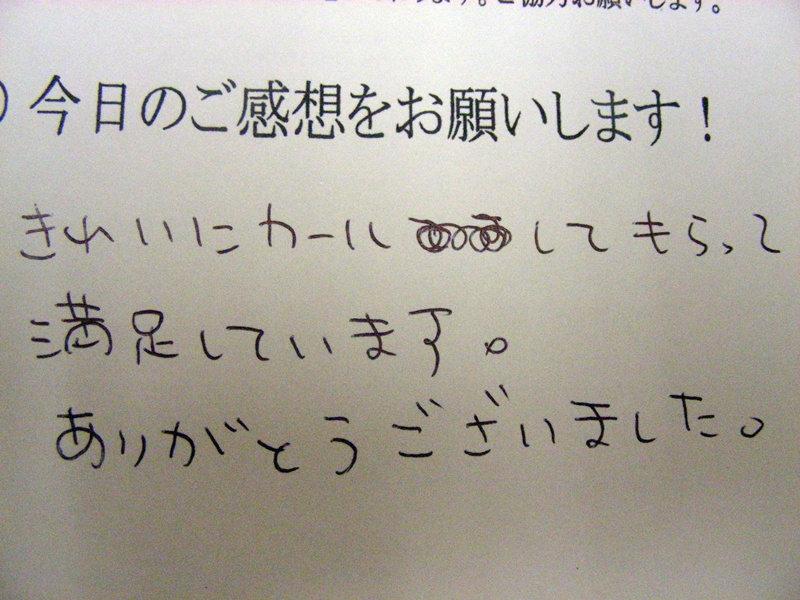 ます。ご協力お願いします。
) 今日のご感想をお願いします！
きれいにカール してもらって
満足しています。
ありがとうございました。